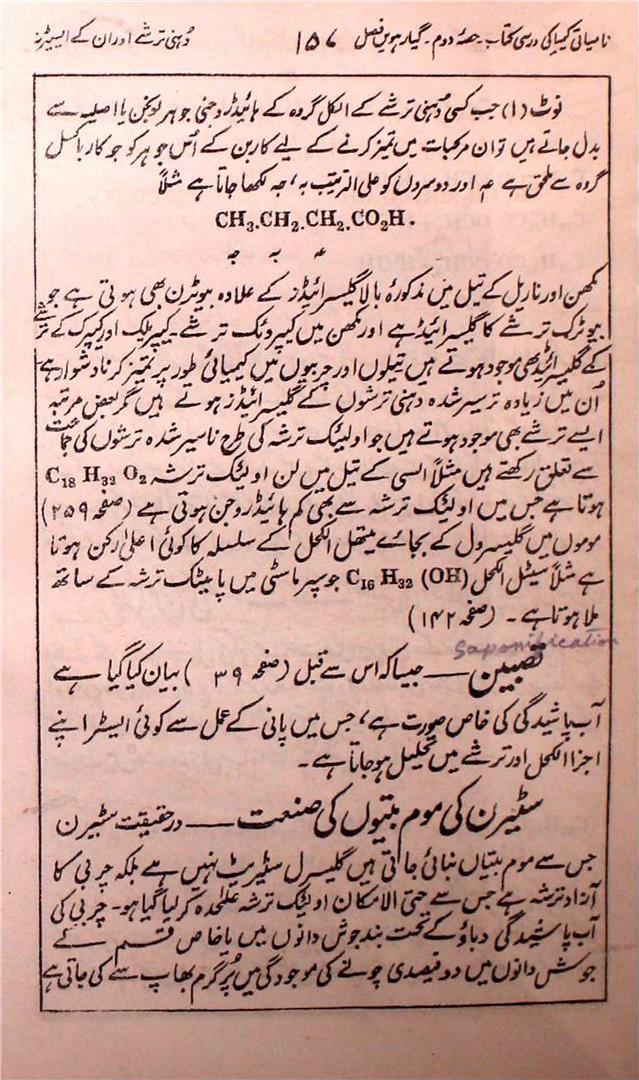 نامیاتی کیمیا کی درسی کتاب۔حصۂ دوم۔گیارہویں فصل ۱۵۷ دُہنی ترشے اور ان کے ایسٹرز
نوٹ (۱) جب کسی دُہنی ترشے کے الکل گروہ کے ہائیڈروجنی جوہر لوخن یا اصلیہ سے
بدل جاتے ہیں تو ان مرکبات میں تمیز کرنے کے لیے کاربن کے اُس جوہر کو جو کارباکسل
گروہ سے ملحق ہے عہ اور دوسروں کو علی الترتیب بہ، جہ لکھا جاتا ہے مثلاً
CH₃.CH₂.CH₂.CO₂H.
جہ بہ عہ
مکھن اور ناریل کے تیل میں مذکورۂ بالا گلیسرائیڈز کے علاوہ بیوٹرن بھی ہوتی ہے جو
بیوٹرک ترشے کا گلیسرائیڈ ہے اور مکھن میں کیپروئک ترشے۔کیپرلک اور کیپرک کے ترشے
کے گلیسرائیڈ بھی موجود ہوتے ہیں تیلوں اور چربیوں میں کیمیائی طور پر تمیز کرنا دشوار ہے
اُن میں زیادہ تر سیر شدہ دہنی ترشوں کے گلیسرائیڈز ہوتے ہیں مگر بعض مرتبہ
ایسے ترشے بھی موجود ہوتے ہیں جو اولیئک ترشہ کی طرح ناسیر شدہ ترشوں کی جماعت
سے تعلق رکھتے ہیں مثلاً السی کے تیل میں لن اولیئک ترشہ C₁₈ H₃₂ O₂
ہوتا ہے جس میں اولیئک ترشہ سے بھی کم ہائیڈروجن ہوتی ہے (صفحہ ۲۵۹)
موموں میں گلیسرول کے بجائے میتھل الکحل کے سلسلہ کا کوئی اعلیٰ رکن ہوتا
ہے مثلاً سیٹل الکحل C₁₆ H₃₂ (OH) جو سپرماسٹی میں پامیٹک ترشہ کے ساتھ
ملا ہوتا ہے۔ (صفحہ ۱۴۲)
Saponification
تصبین — جیسا کہ اس سے قبل (صفحہ ۳۹) بیان کیا گیا ہے
آب پاشیدگی کی خاص صورت ہے، جس میں پانی کے عمل سے کوئی ایسٹر اپنے
اجزا الکحل اور ترشے میں تحلیل ہوجاتا ہے۔
سٹیرن کی موم بتیوں کی صنعت — درحقیقت سٹیرن
جس سے موم بتیاں بنائی جاتی ہیں گلیسرل سٹیریٹ نہیں ہے بلکہ چربی کا
آزاد ترشہ ہے جس سے حتی الامکان اولیئک ترشہ علٰحدہ کرلیا گیا ہو۔ چربی کی
آب پاشیدگی دباؤ کے تحت بند جوش دانوں میں یا خاص قسم کے
جوش دانوں میں دو فیصدی چونے کی موجودگی میں پُر گرم بھاپ سے کی جاتی ہے